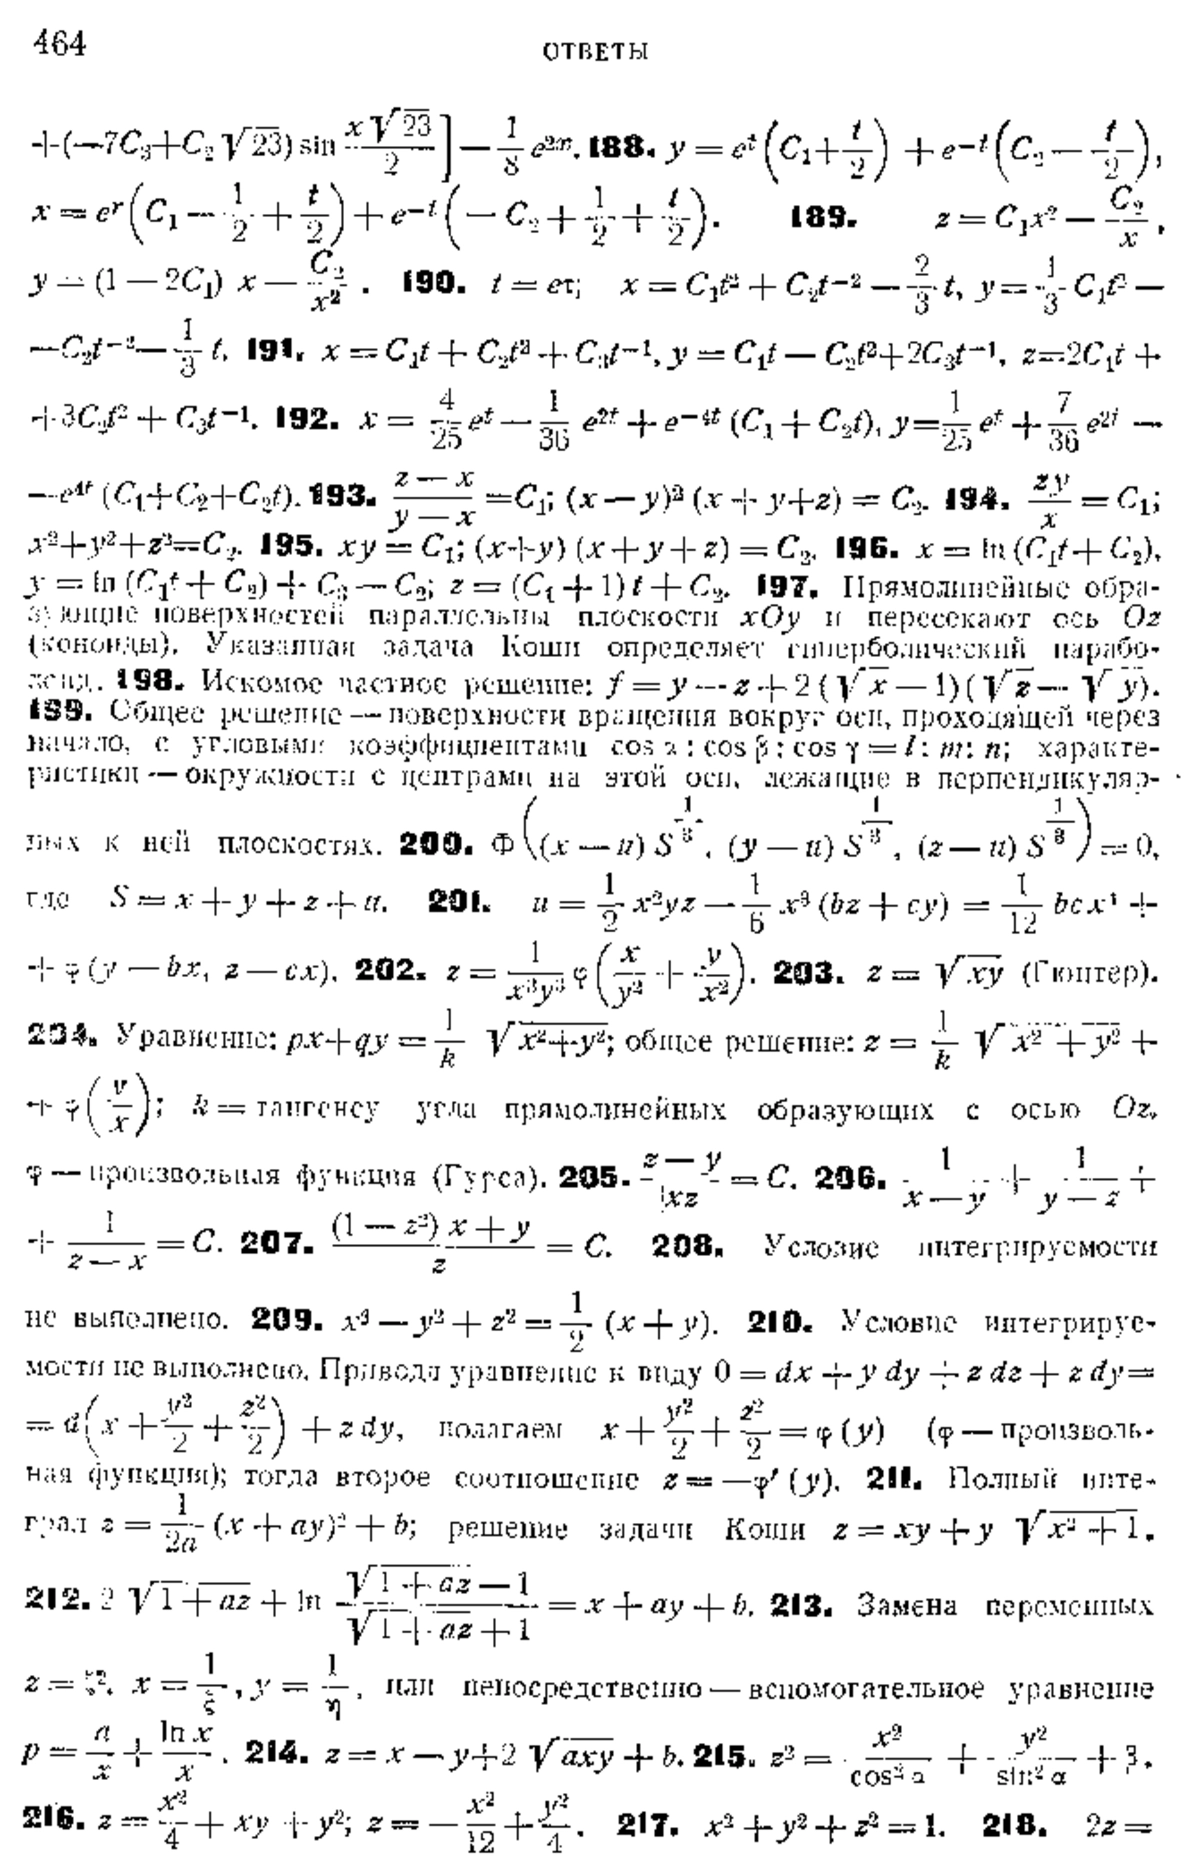 464 ОТВЕТЫ
+(−7C₃+C₂√23) sin x√23/2] − 1/8 e²ˣ. 188. y = eᵗ(C₁+t/2) + e⁻ᵗ(C₂ − t/2),
x = eʳ(C₁ − 1/2 + t/2) + e⁻ᵗ(−C₂ + 1/2 + t/2). 189. z = C₁x² − C₂/x,
y = (1 − 2C₁) x − C₂/x². 190. t = eτ; x = C₁t² + C₂t⁻² − 2/3 t, y = 1/3 C₁t² −
−C₂t⁻² − 1/3 t. 191. x = C₁t + C₂t² + C₃t⁻¹, y = C₁t − C₂t²+2C₃t⁻¹, z=2C₁t +
+3C₂t² + C₃t⁻¹. 192. x = 4/25 eᵗ − 1/36 e²ᵗ + e⁻⁴ᵗ (C₁ + C₂t), y= 1/25 eᵗ + 7/36 e²ᵗ −
−e⁴ᵗ (C₁+C₂+C₂t). 193. (z − x)/(y − x) =C₁; (x − y)² (x + y+z) = C₂. 194. zy/x = C₁;
x²+y²+z²=C₂. 195. xy = C₁; (x+y) (x + y + z) = C₂. 196. x = ln (C₁t + C₂),
y = ln (C₁t + C₂) + C₃ − C₂; z = (C₁ + 1) t + C₂. 197. Прямолинейные обра-
зующие поверхностей параллельны плоскости xOy и пересекают ось Oz
(коноиды). Указанная задача Коши определяет гиперболический парабо-
лоид. 198. Искомое частное решение: f = y − z + 2 (√x − 1) (√z − √y).
199. Общее решение — поверхности вращения вокруг оси, проходящей через
начало, с угловыми коэффициентами cos α : cos β : cos γ = l : m : n; характе-
ристики — окружности с центрами на этой оси, лежащие в перпендикуляр-
ных к ней плоскостях. 200. Φ((x − u) S^{1/3}, (y − u) S^{1/3}, (z − u) S^{1/3}) = 0,
где S = x + y + z + u. 201. u = 1/2 x²yz − 1/6 x³ (bz + cy) = 1/12 bcx⁴ +
+ φ (y − bx, z − cx). 202. z = 1/(x³y³) φ(x/y² + y/x²). 203. z = √xy (Гюнтер).
204. Уравнение: px+qy = 1/k √(x²+y²); общее решение: z = 1/k √(x² + y²) +
+ φ(y/x); k = тангенсу угла прямолинейных образующих с осью Oz,
φ — произвольная функция (Гурса). 205. (z − y)/xz = C. 206. 1/(x − y) + 1/(y − z) +
+ 1/(z − x) = C. 207. ((1 − z²) x + y)/z = C. 208. Условие интегрируемости
не выполнено. 209. x³ − y² + z² = 1/2 (x + y). 210. Условие интегрируе-
мости не выполнено. Приводя уравнение к виду 0 = dx + y dy + z dz + z dy=
= d(x + y²/2 + z²/2) + z dy, полагаем x + y²/2 + z²/2 = φ (y) (φ — произволь-
ная функция); тогда второе соотношение z = −φ′ (y). 211. Полный инте-
грал z = 1/2a (x + ay)² + b; решение задачи Коши z = xy + y √(x² + 1).
212. 2 √(1 + az) + ln (√(1 + az) − 1)/(√(1 + az) + 1) = x + ay + b. 213. Замена переменных
z = ζ², x = 1/ξ, y = 1/η, или непосредственно — вспомогательное уравнение
p = a/x + ln x/x. 214. z = x − y+2 √axy + b. 215. z² = x²/cos² α + y²/sin² α + β.
216. z = x²/4 + xy + y²; z = − x²/12 + y²/4. 217. x² + y² + z² = 1. 218. 2z =